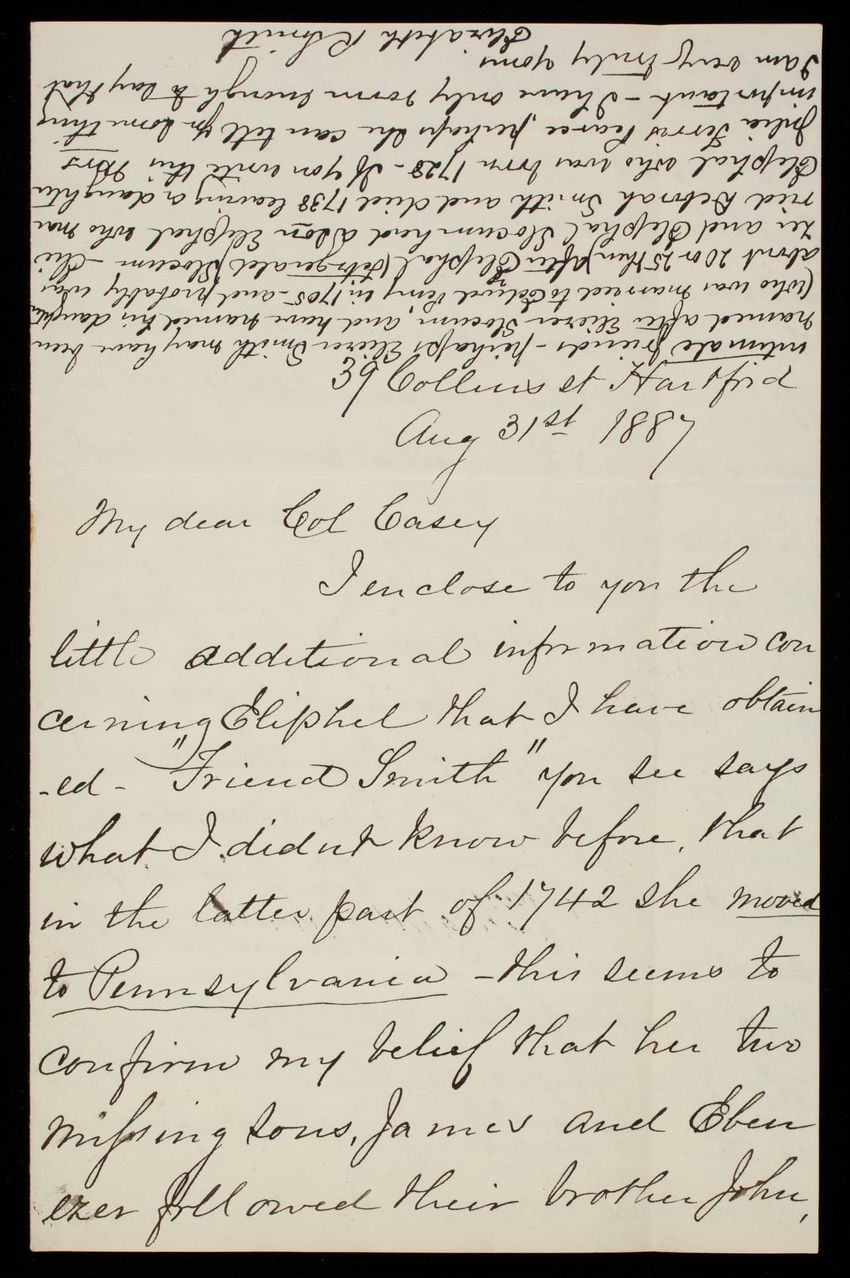 39 Collins st Hartford
Aug 31st 1887
My dear Col Casey
I enclose to you the
little additional information con
cerning Eliphel that I have obtain
-ed - "Friend Smith" you see says
what I didn't know before, that
in the latter part of 1742 she moved
to Pennsylvania - this seems to
confirm my belief that her two
missing sons, James and Eben
ezer followed their brother John,
intimate friends - perhaps Eliezer Smith may have been
named after Eliezer Slocum, and have named his daughter
(who was married to Edward Perry in 1705 - and probably was
about 20 or 25 then) after Eliphal (Fitzgerald) Slocum - Elie
zer and Eliphal Slocum had a son Eliezer who mar
ried Deborah Smith and died 1738 leaving a daughter
Eliphal who was born 1728 - If you write this Mrs
Julia Ferris Pearce, perhaps she can tell you something
important - I have only room enough to say that
I am very truly yours
Elizabeth R. Smith